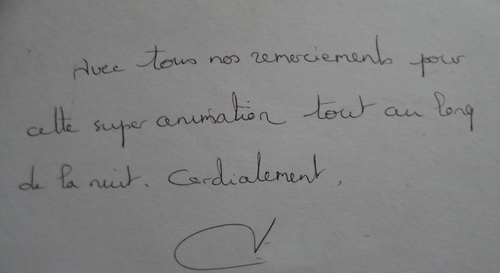 Avec tous nos remerciements pour
cette super animation tout au long
de la nuit. Cordialement,